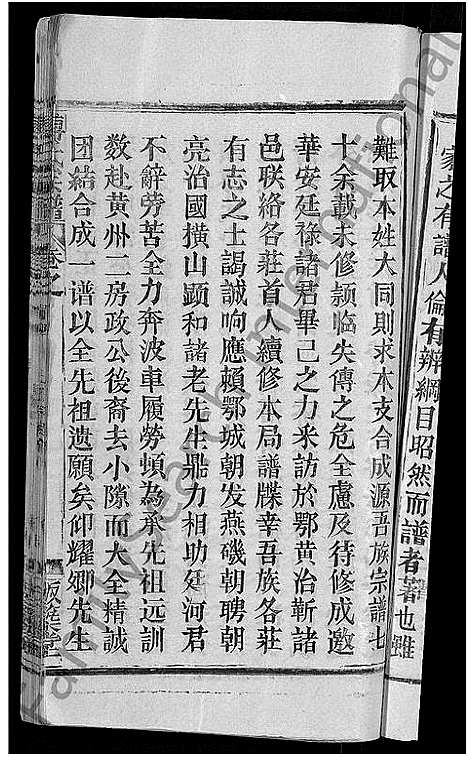 家之有譜人倫有辨綱目昭然而譜者著也雖
難取本姓大同則求本支合成源吾族宗譜七
十余載未修颍临失傳之危全慮及待修成邀
華安廷祿諸君畢己之力来訪於鄂黄冶蘄諸
邑联絡各莊首人續修本局譜牒幸吾族各莊
有志之士謁誠响應頼鄂城朝发燕磯朝聘朝
亮治國横山顕和諸老先生鼎力相助廷河君
不辭劳苦全力奔波車履勞頓為承先祖远訓
数赴黄州二房政公後裔去小隙而大全精誠
团結合成一谱以全先祖遗願矣仰耀卿先生
氏宗譜 卷之
堂